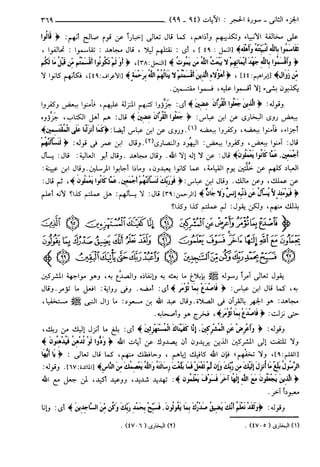 الجزء الثانى – سورة الحجر : الآيات (٩٤ – ٩٩) ٣٦٩
على مخالفة الأنبياء وتكذيبهم وأذاهم، كما قال تعالى إخباراً عن قوم صالح أنهم: ﴿ قَالُوا
تَقَاسَمُوا بِاللَّهِ لَنُبَيِّتَنَّهُ وَأَهْلَهُ ﴾ [النمل: ٤٩] ، أى : نقتلهم ليلا ، قال مجاهد : تقاسموا : تحالفوا ،
﴿ وَأَقْسَمُوا بِاللَّهِ جَهْدَ أَيْمَانِهِمْ لا يَبْعَثُ اللَّهُ مَن يَمُوتُ ﴾ [النحل:٣٨]، ﴿ أَوَ لَمْ تَكُونُوا أَقْسَمْتُم مِّن قَبْلُ مَا لَكُم
مِّن زَوَالٍ ﴾ [إبراهيم: ٤٤] ، ﴿ أَهَؤُلاءِ الَّذِينَ أَقْسَمْتُمْ لا يَنَالُهُمُ اللَّهُ بِرَحْمَةٍ ﴾ [الأعراف:٤٩]، فكأنهم كانوا لا
يكذبون بشىء إلا أقسموا عليه، فسموا مقتسمين.
وقوله: ﴿ الَّذِينَ جَعَلُوا الْقُرْآنَ عِضِينَ ﴾ أى: جزّؤوا كتبهم المنزلة عليهم، فآمنوا ببعض وكفروا
ببعض روى البخارى عن ابن عباس: ﴿ جَعَلُوا الْقُرْآنَ عِضِينَ ﴾ قال: هم أهل الكتاب، جزّؤوه
أجزاء، فآمنوا ببعضه، وكفروا ببعضه (١). وروى عن ابن عباس أيضا: ﴿ كَمَا أَنزَلْنَا عَلَى الْمُقْتَسِمِينَ ﴾
قال: آمنوا ببعض، وكفروا ببعض: اليهُود والنصارى (٢). وقال ابن عمر فى قوله: ﴿ لَنَسْأَلَنَّهُمْ
أَجْمَعِينَ. عَمَّا كَانُوا يَعْمَلُونَ ﴾ قال: عن لا إله إلا الله. وقال مجاهد. وقال أبو العالية: قال: يسأل
العباد كلهم عن خُلَّتَيْن يوم القيامة، عما كانوا يعبدون، وماذا أجابوا المرسلين. وقال ابن عيينة:
عن عملك، وعن مالك. وقال ابن عباس: ﴿ فَوَرَبِّكَ لَنَسْأَلَنَّهُمْ أَجْمَعِينَ. عَمَّا كَانُوا يَعْمَلُونَ ﴾، ثم قال:
﴿ فَيَوْمَئِذٍ لا يُسْأَلُ عَن ذَنبِهِ إِنسٌ وَلا جَانٌّ ﴾ [الرحمن: ٣٩] قال: لا يسألهم: هل عملتم كذا؟ لأنه أعلم
بذلك منهم، ولكن يقول: لم عملتم كذا وكذا؟
يقول تعالى آمراً رسوله ﷺ بإبلاغ ما بعثه به وإنفاذه والصَّدْع به، وهو مواجهة المشركين
به، كما قال ابن عباس: ﴿ فَاصْدَعْ بِمَا تُؤْمَرُ ﴾ أى: أمضه. وفى رواية: افعل ما تؤمر. وقال
مجاهد: هو الجهر بالقرآن فى الصلاة. وقال عبد الله بن مسعود: ما زال النبى ﷺ مستخفيا،
حتى نزلت: ﴿ فَاصْدَعْ بِمَا تُؤْمَرُ ﴾، فخرج هو وأصحابه.
وقوله: ﴿ وَأَعْرِضْ عَنِ الْمُشْرِكِينَ. إِنَّا كَفَيْنَاكَ الْمُسْتَهْزِئِينَ ﴾ أى: بلغ ما أنزل إليك من ربك،
ولا تلتفت إلى المشركين الذين يريدون أن يصدوك عن آيات الله ﴿ وَدُّوا لَوْ تُدْهِنُ فَيُدْهِنُونَ ﴾
[القلم:٩]، ولا تخفْهم؛ فإن الله كافيك إياهم ، وحافظك منهم، كما قال تعالى : ﴿ يَا أَيُّهَا
الرَّسُولُ بَلِّغْ مَا أُنزِلَ إِلَيْكَ مِن رَّبِّكَ وَإِن لَّمْ تَفْعَلْ فَمَا بَلَّغْتَ رِسَالَتَهُ وَاللَّهُ يَعْصِمُكَ مِنَ النَّاسِ ﴾ [المائدة: ٦٧]. وقوله:
﴿ الَّذِينَ يَجْعَلُونَ مَعَ اللَّهِ إِلَهًا آخَرَ فَسَوْفَ يَعْلَمُونَ ﴾ : تهديد شديد، ووعيد أكيد، لمن جعل مع الله
معبوداً آخر.
وقوله: ﴿ وَلَقَدْ نَعْلَمُ أَنَّكَ يَضِيقُ صَدْرُكَ بِمَا يَقُولُونَ. فَسَبِّحْ بِحَمْدِ رَبِّكَ وَكُن مِّنَ السَّاجِدِينَ ﴾ أى: وإنا
(١) البخارى (٤٧٠٥) . (٢) البخارى (٤٧٠٦) .